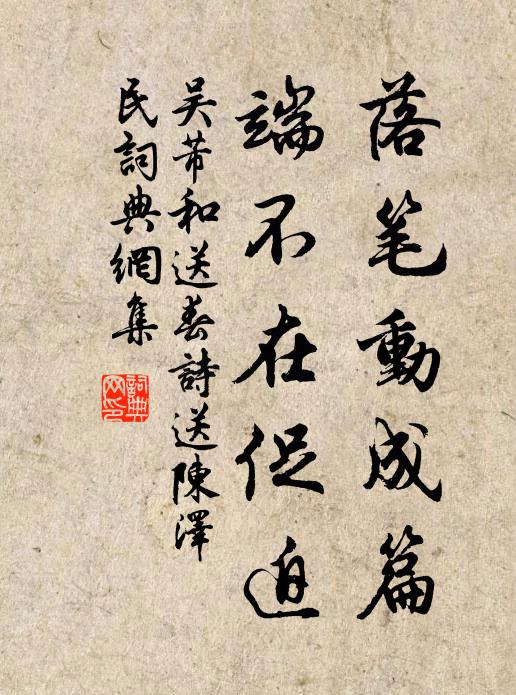 落笔動成篇
端不在促迫
吴芾和送春詩送陳澤
民詞典網集
詞典网印